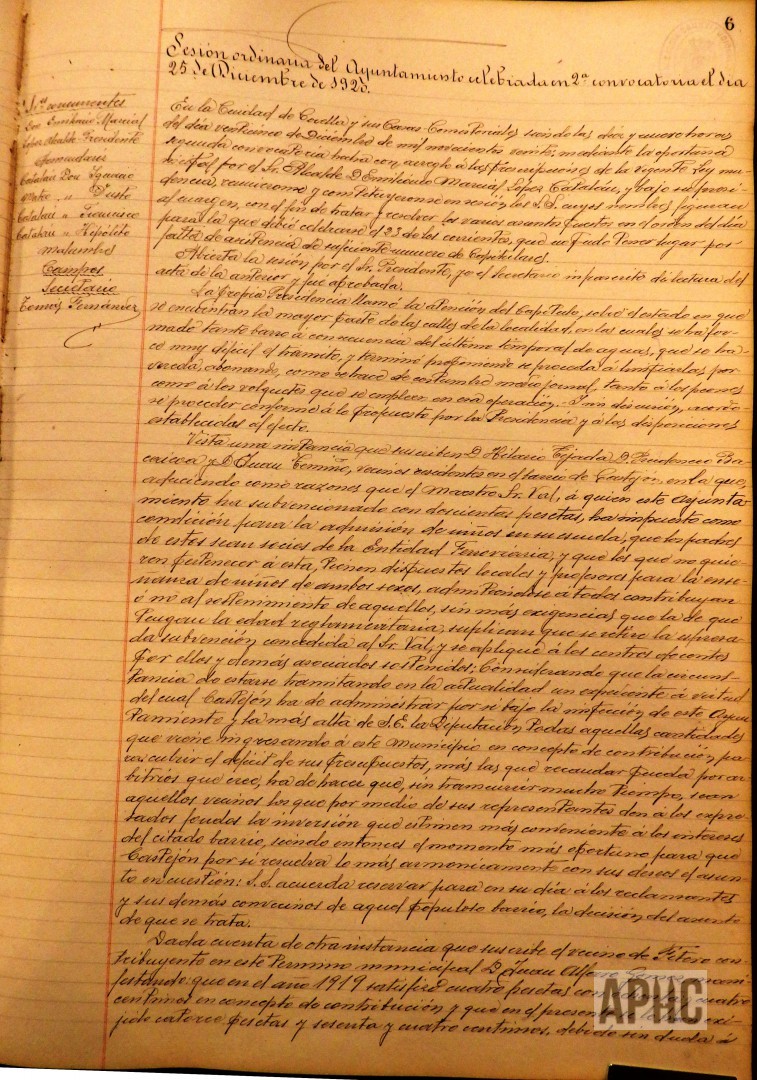 6
Sesión ordinaria del Ayuntamiento celebrada en 2ª convocatoria el día
25 de Diciembre de 1920.
Sres concurrentes
Don Emiliano Marcial
López Alcalde Presidente
Catalán Don Ignacio
" Justo
Catalán " Francisco
Catalán " Hipólito
Malumbres
Campos
Secretario
Tomás Fernández
En la Ciudad de Corella y sus Casas Consistoriales siendo las diez y nueve horas
del día veinticinco de Diciembre de mil novecientos veinte, mediante la oportuna
segunda convocatoria hecha con arreglo á las prescripciones de la vigente Ley mu-
nicipal por el Sr. Alcalde D. Emiliano Marcial López Catalán, y bajo su presi-
dencia, reuniéronse y constituyéronse en sesión los S.S. cuyos nombres figuran
al margen, con el fin de tratar y resolver los varios asuntos puestos en el orden del día
para la que debió celebrarse el 23 de los corrientes, que no pudo tener lugar por
falta de asistencia de suficiente número de Capitulares.
Abierta la sesión por el Sr. Presidente, yo el Secretario infrascrito dí lectura del
acta de la anterior y fué aprobada.
La propia Presidencia llamó la atención del Capítulo, sobre el estado en que
se encuentran la mayor parte de las calles de la localidad, en las cuales se ha for-
mado tanto barro á consecuencia del último temporal de aguas, que se ha-
ce muy difícil el tránsito, y terminó proponiendo se proceda á limpiarlas por
vereda, abonando, como se hace de costumbre medio jornal, tanto á los peones
como á los volquetes que se empleen en esa operación. Sin discusión, acordó-
se proceder conforme á lo propuesto por la Presidencia y á las disposiciones
establecidas al efecto.
Vista una instancia que suscriben D. Hilario Tejada, D. Prudencio Ba-
y D. Juan vecinos residentes en el barrio de Castejón, en la que,
aduciendo como razones que el Maestro Sr. Val, á quien este Ayunta-
miento ha subvencionado con doscientas pesetas, ha impuesto como
condición para la admisión de niños en su escuela, que los padres
de estos sean socios de la Entidad Ferroviaria, y que los que no quie-
ren pertenecer á esta, tienen dispuestos locales y profesores para la ense-
ñanza de niños de ambos sexos, admitiéndose á todos contribuyan
ó nó al sostenimiento de aquellos, sin más exigencias que la de que
tengan la edad reglamentaria, suplican que se retire la expresa-
da subvención concedida al Sr. Val, y se aplique á los centros docentes
por ellos y demás asociados sostenidos; Considerando que la circuns-
tancia de estarse tramitando en la actualidad un expediente á virtud
del cual Castejón ha de administrar por sí bajo la inspección de este Ayun-
tamiento y la más alta de S.E. la Diputación, todas aquellas cantidades
que viene ingresando á este Municipio en concepto de contribución, pa-
ra cubrir el déficit de sus presupuestos, más las que recaudar pueda por ar-
bitrios que cree, ha de hacer que, sin transcurrir mucho tiempo, sean
aquellos vecinos los que por medio de sus representantes den á los expre-
sados fondos la inversión que estimen más conveniente á los intereses
del citado barrio, siendo entonces el momento más oportuno para que
Castejón por sí resuelva lo más armonicamente con sus deseos el asun-
to en cuestión: S.S. acuerda reservar para en su día á los reclamantes
y sus demás convecinos de aquel populoso barrio, la decisión del asunto
de que se trata.
Dada cuenta de otra instancia que suscribe el vecino de Fitero con-
tribuyente en este término municipal D. Juan mani-
festando: que en el año 1919 satisfizo cuatro pesetas cuatro
céntimos en concepto de contribución y que en el presente exi-
jido catorce pesetas y sesenta y cuatro céntimos, debido sin duda á
APHC